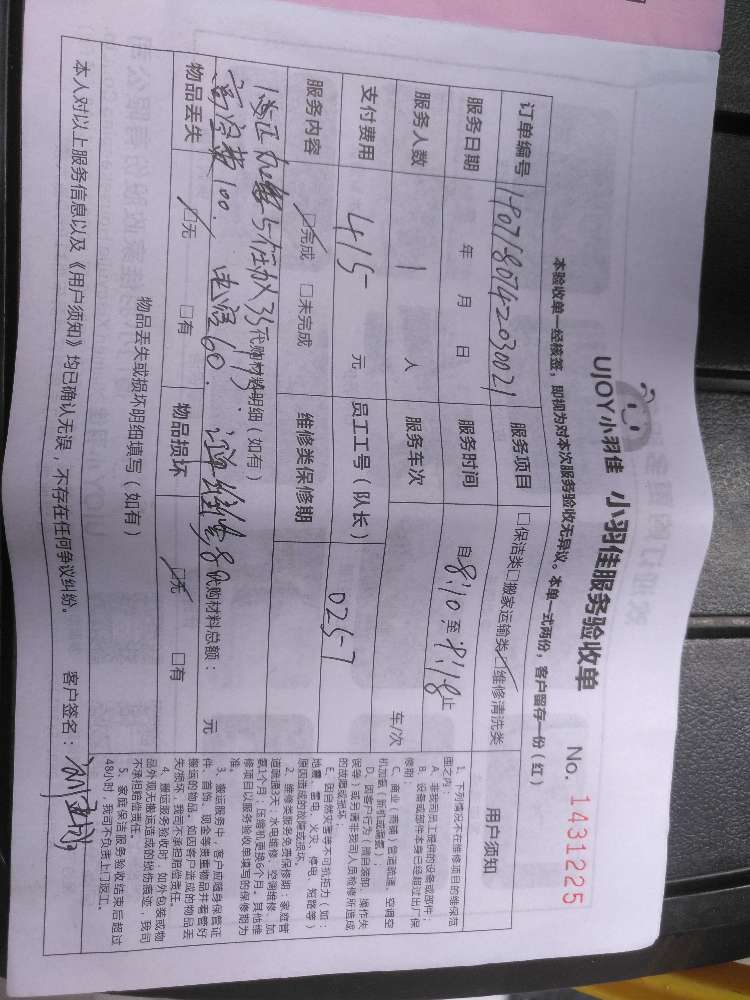 UJOY小羽佳 小羽佳服务验收单
No. 1431225
本验收单一经核签，即视为对本次服务验收无异议。本单一式两份，客户留存一份（红）
订单编号 服务项目 □保洁类□搬家运输类□维修清洗类
服务日期 年 月 日 服务时间 自8:10至 止
服务人数 1 人 服务车次 车/次
支付费用 415 元 员工工号（队长） 0257
服务内容 □完成 □未完成 维修类保修期
代购材料明细（如有）： 代购材料总额： 元
高空费100. 60. 80
物品丢失 □无 □有 物品损坏 □无 □有
物品丢失或损坏明细填写（如有）
本人对以上服务信息以及《用户须知》均已确认无误，不存在任何争议纠纷。 客户签名：
用户须知
1. 下列情况不在维修项目的维保范围之内：
A. 非我司员工提供的设备或部件；
B. 设备或部件本身已经超过出厂保修期；
C. 商业（商铺）管道疏通、空调空机加氟（新机或漏氟）；
D. 因客户行为（擅自装卸、操作失误等）或另请非我司人员检修所造成的故障或损坏；
E. 因自然灾害等不可抗拒力（如：地震、雷电、火灾、停电、短路等）原因造成的故障或损坏。
2. 维修类服务免费保修期：家庭管道疏通3天；水电维修、空调维修、加氟1个月；压缩机更换6个月。其他维修项目以服务验收单填写的保修期为准。
3. 搬运服务中，客户应随身保管证件、首饰、现金等贵重物品并看管好搬运的物品。如因客户造成的物品丢失/损坏，我司不承担赔偿责任。
4. 搬运服务验收时，如外包装或物品外观无搬运造成的挠伤痕迹，我司不承担赔偿责任。
5. 家庭保洁服务验收结束后超过48小时，我司不负责上门返工。